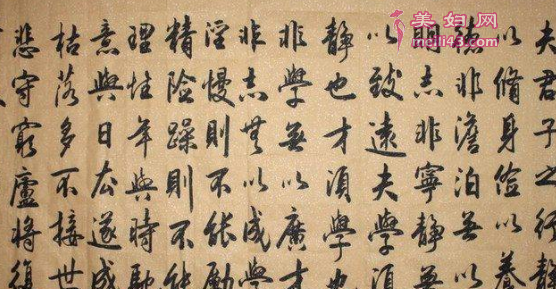 美妇网
meili43.com
夫君子之行靜
以脩身儉以養
德非澹泊無以
明志非寧靜無
以致遠夫學須
靜也才須學也
非學無以廣才
非志無以成學
淫慢則不能勵
精險躁則不能
理性年與時馳
意與日去遂成
枯落多不接世
悲守窮廬將復